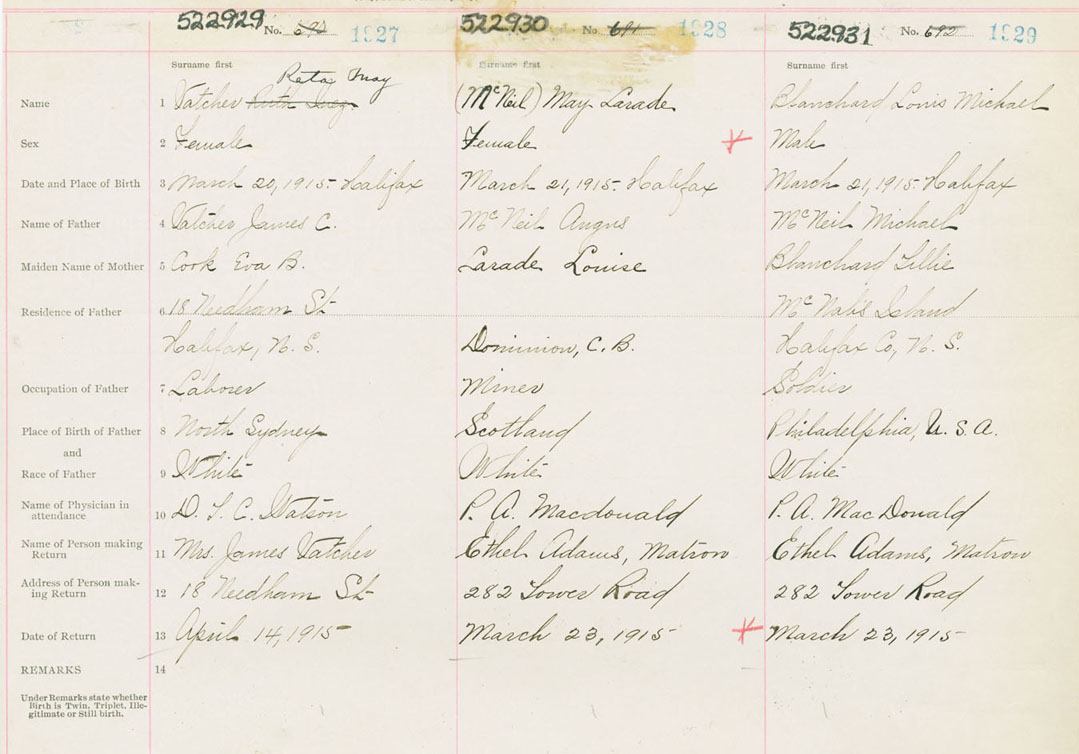 522929 No. 1927 522930 No. 691 1928 522931 No. 692 1929
Surname first Surname first Surname first
Reta May
Name 1 Vatcher Ruth (McNeil) May Larade Blanchard Louis Michael
Sex 2 Female Female Male
Date and Place of Birth 3 March 20, 1915- Halifax March 21, 1915- Halifax March 21, 1915- Halifax
Name of Father 4 Vatcher James C. McNeil Angus McNeil Michael
Maiden Name of Mother 5 Cook Eva B. Larade Louise Blanchard Lillie
Residence of Father 6 18 Needham St McNabs Island
Halifax, N. S. Dominion, C. B. Halifax Co, N. S.
Occupation of Father 7 Laborer Miner Soldier
Place of Birth of Father 8 North Sydney Scotland Philadelphia, U. S. A.
and
Race of Father 9 White White White
Name of Physician in
attendance 10 D. T. C. Watson P. A. Macdonald P. A. MacDonald
Name of Person making
Return 11 Mrs. James Vatcher Ethel Adams, Matron Ethel Adams, Matron
Address of Person mak-
ing Return 12 18 Needham St 282 Tower Road 282 Tower Road
Date of Return 13 April 14, 1915- March 23, 1915- March 23, 1915-
REMARKS 14
Under Remarks state whether
Birth is Twin, Triplet, Ille-
gitimate or Still birth.